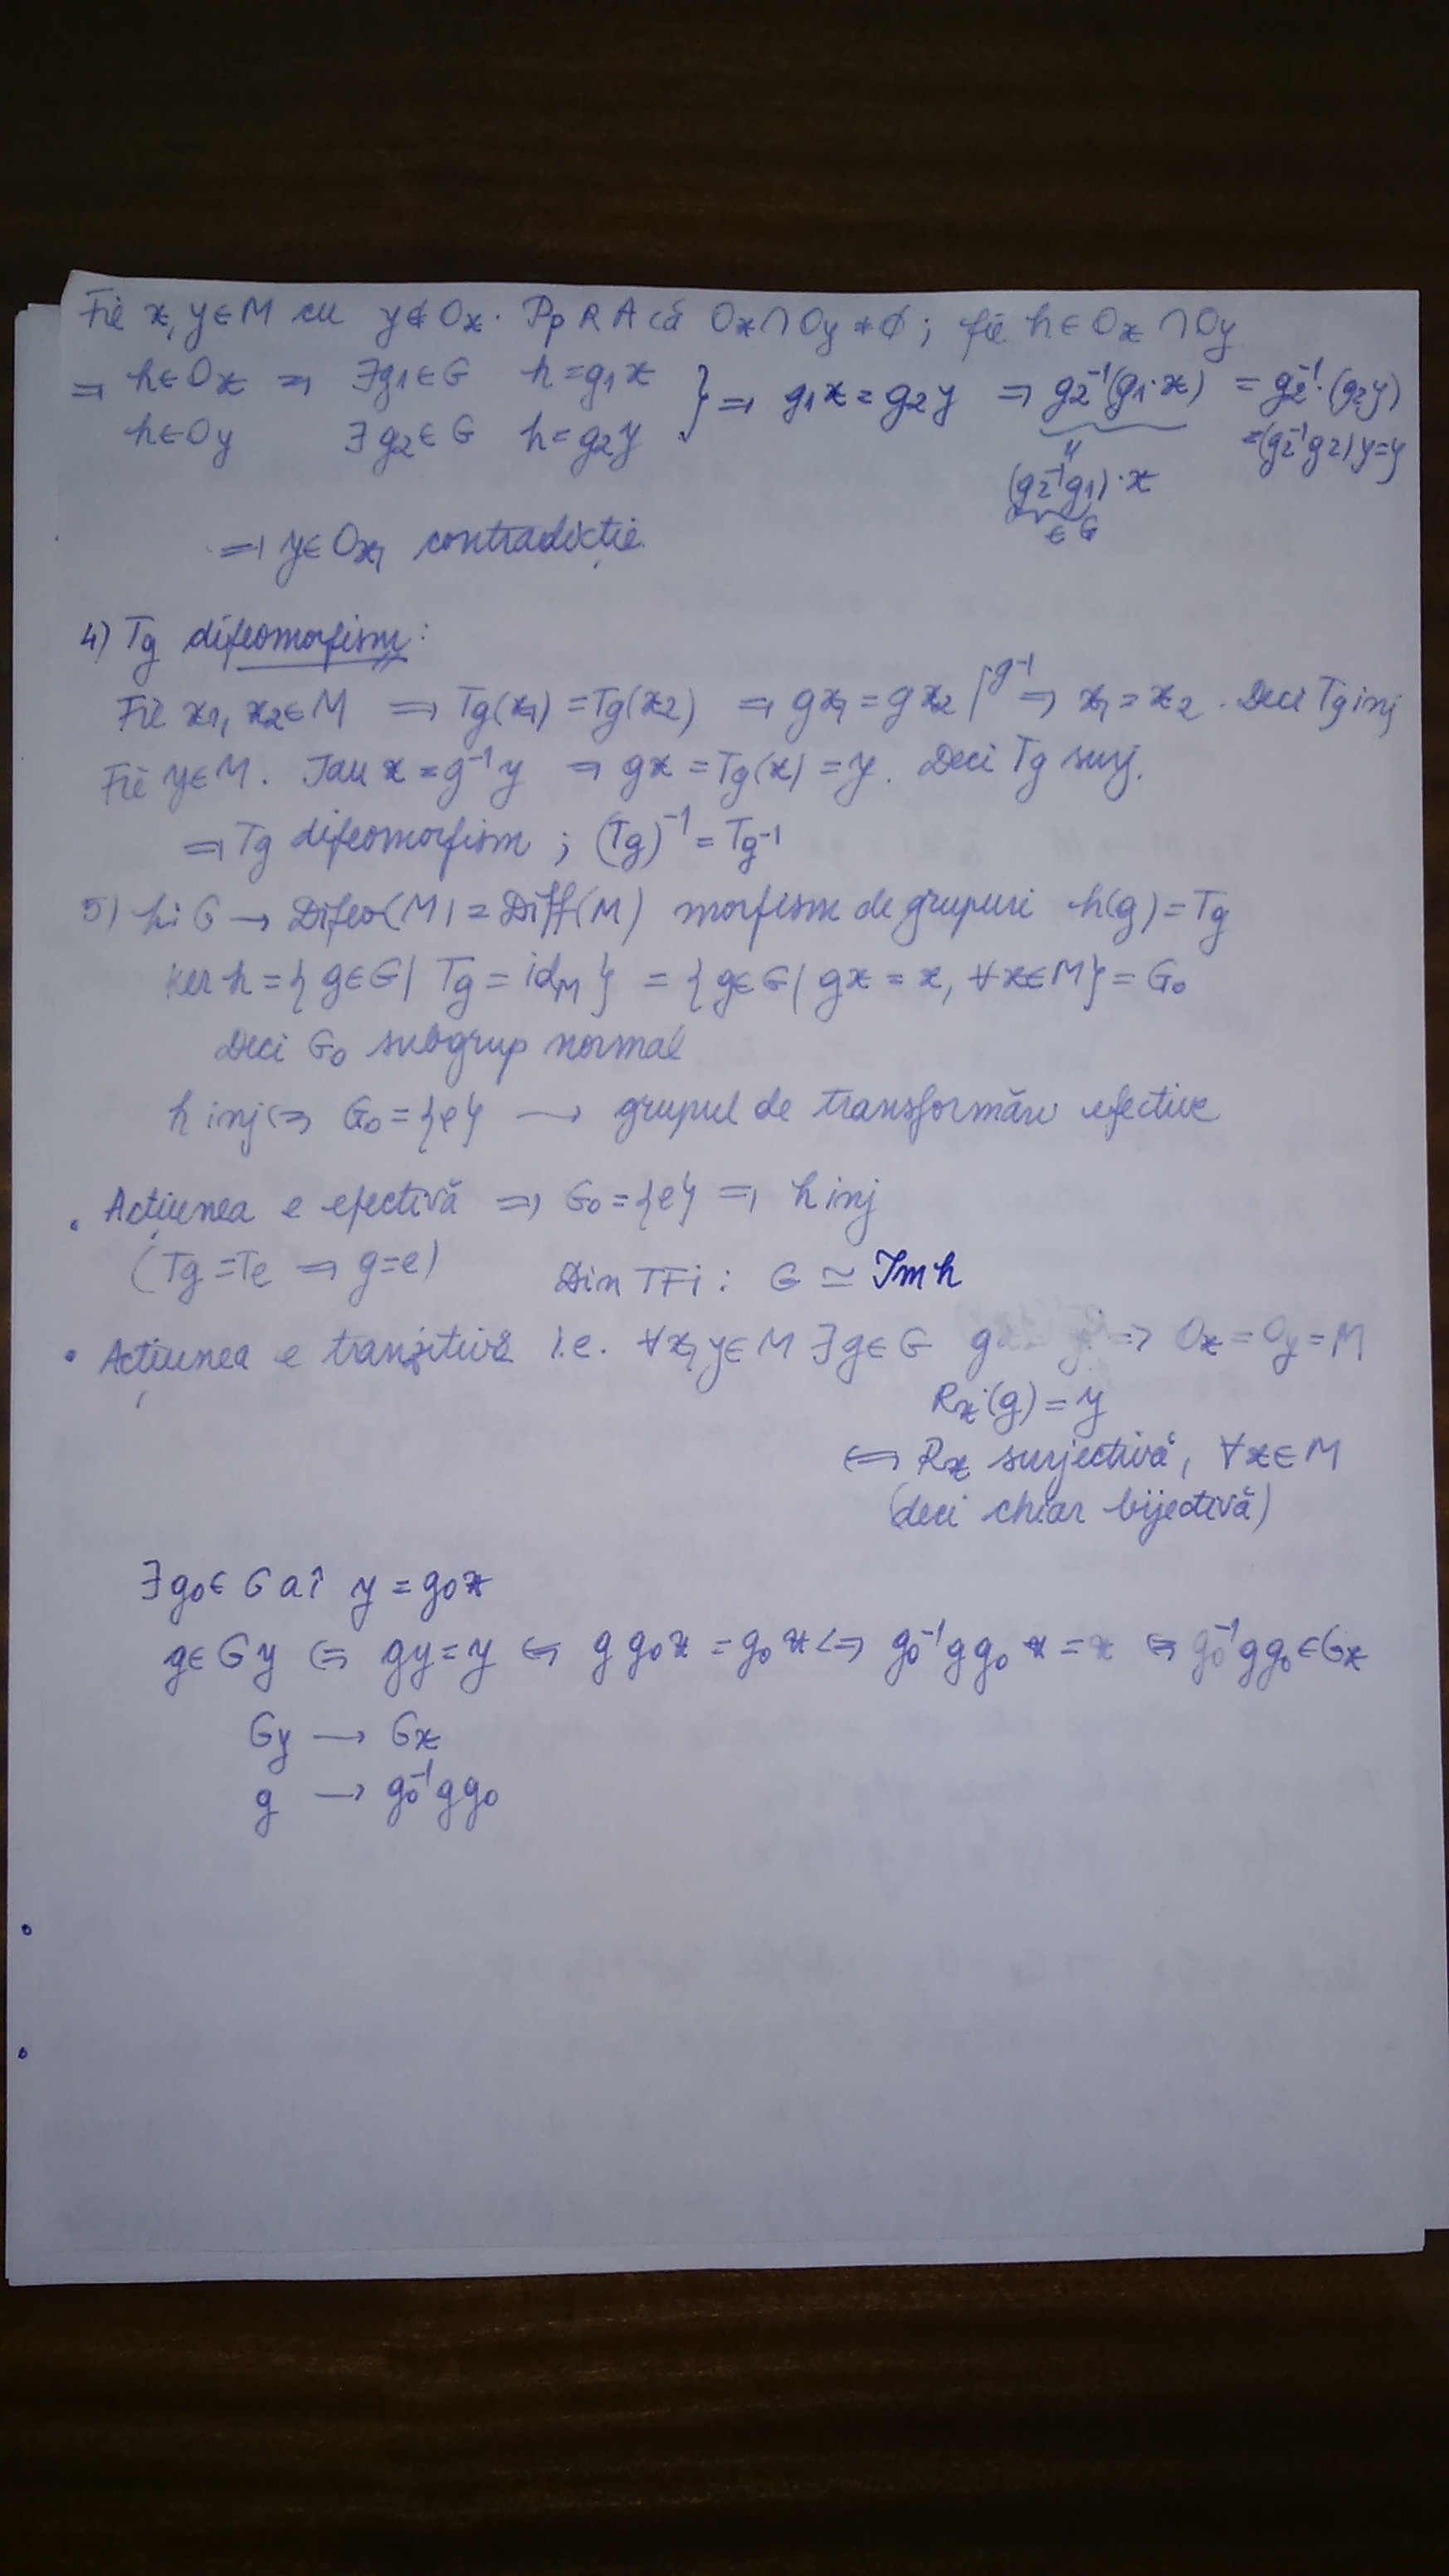 Fie x, y∈M cu y∉Ox. Pp RA că Ox∩Oy ≠ ∅; fie h∈Ox∩Oy
⇒ h∈Ox ⇒ ∃g1∈G h=g1x } ⇒ g1x=g2y ⇒ g2⁻¹(g1·x) = g2⁻¹·(g2y)
h∈Oy ∃g2∈G h=g2y =(g2⁻¹g2)y=y
(g2⁻¹g1)·x
∈G
⇒ y∈Ox, contradicție.
4) Tg difeomorfism:
Fie x1, x2∈M ⇒ Tg(x1)=Tg(x2) ⇒ gx1=gx2 |·g⁻¹ ⇒ x1=x2. Deci Tg inj
Fie y∈M. Iau x=g⁻¹y ⇒ gx=Tg(x)=y. Deci Tg surj.
⇒ Tg difeomorfism ; (Tg)⁻¹=Tg⁻¹
5) h: G → Difeo(M)=Diff(M) morfism de grupuri h(g)=Tg
Ker h={g∈G| Tg=id_M} = {g∈G| gx=x, ∀x∈M}=G0
Deci G0 subgrup normal
h inj ⇔ G0={e} → grupul de transformări efective
• Acțiunea e efectivă ⇒ G0={e} ⇒ h inj
(Tg=Te ⇒ g=e) Din TFi: G ≃ Im h
• Acțiunea e tranzitivă i.e. ∀x,y∈M ∃g∈G g ⇒ Ox=Oy=M
Rx(g)=y
⇔ Rx surjectivă, ∀x∈M
(deci chiar bijectivă)
∃g0∈G aî y=g0x
g∈Gy ⇔ gy=y ⇔ g g0x=g0x ⇔ g0⁻¹g g0 x=x ⇔ g0⁻¹gg0∈Gx
Gy → Gx
g → g0⁻¹gg0